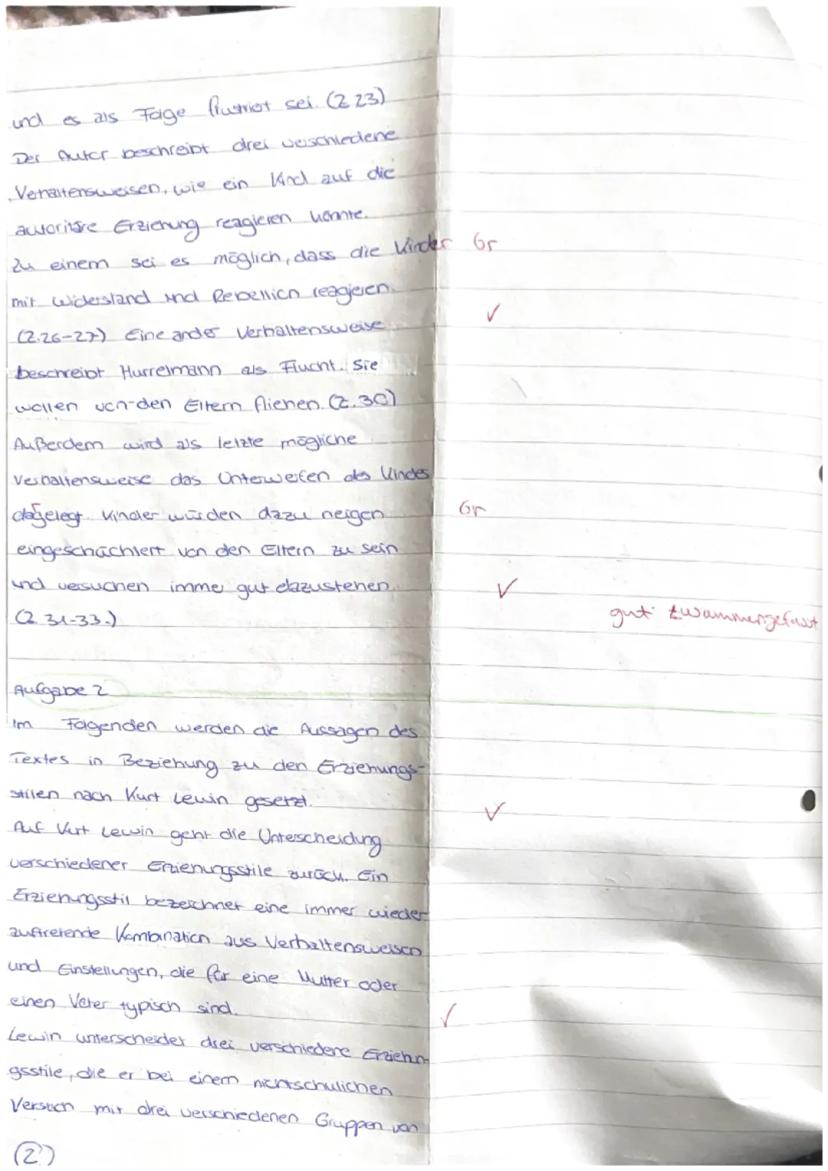 und es als Folge frustriert sei. (Z 23)
Der Autor beschreibt drei verschiedene
Verhaltensweisen, wie ein Kind auf die
autoritäre Erziehung reagieren könnte.
Zu einem sei es möglich, dass die Kinder Gr
mit Widerstand und Rebellion reagieren.
(Z.26-27) Eine ander Verhaltensweise ✓
beschreibt Hurrelmann als Flucht. Sie
wollen von den Eltern fliehen. (Z.30)
Außerdem wird als letzte mögliche
Verhaltensweise das Unterwerfen des Kindes
dagelegt. Kinder würden dazu neigen Gr
eingeschüchtert von den Eltern zu sein
und versuchen immer gut dazustehen. ✓
(Z 31-33.) gut zusammengefasst
Aufgabe 2
Im Folgenden werden die Aussagen des
Textes in Beziehung zu den Erziehungs-
stilen nach Kurt Lewin gesetzt. ✓
Auf Kurt Lewin geht die Unterscheidung
verschiedener Erziehungsstile zurück. Ein
Erziehungsstil bezeichnet eine immer wieder
auftretende Kombination aus Verhaltensweisen
und Einstellungen, die für eine Mutter oder
einen Vater typisch sind. ✓
Lewin unterscheidet drei verschiedene Erziehun
gsstile, die er bei einem nichtschulichen
Versuch mit drei verschiedenen Gruppen von
(2)